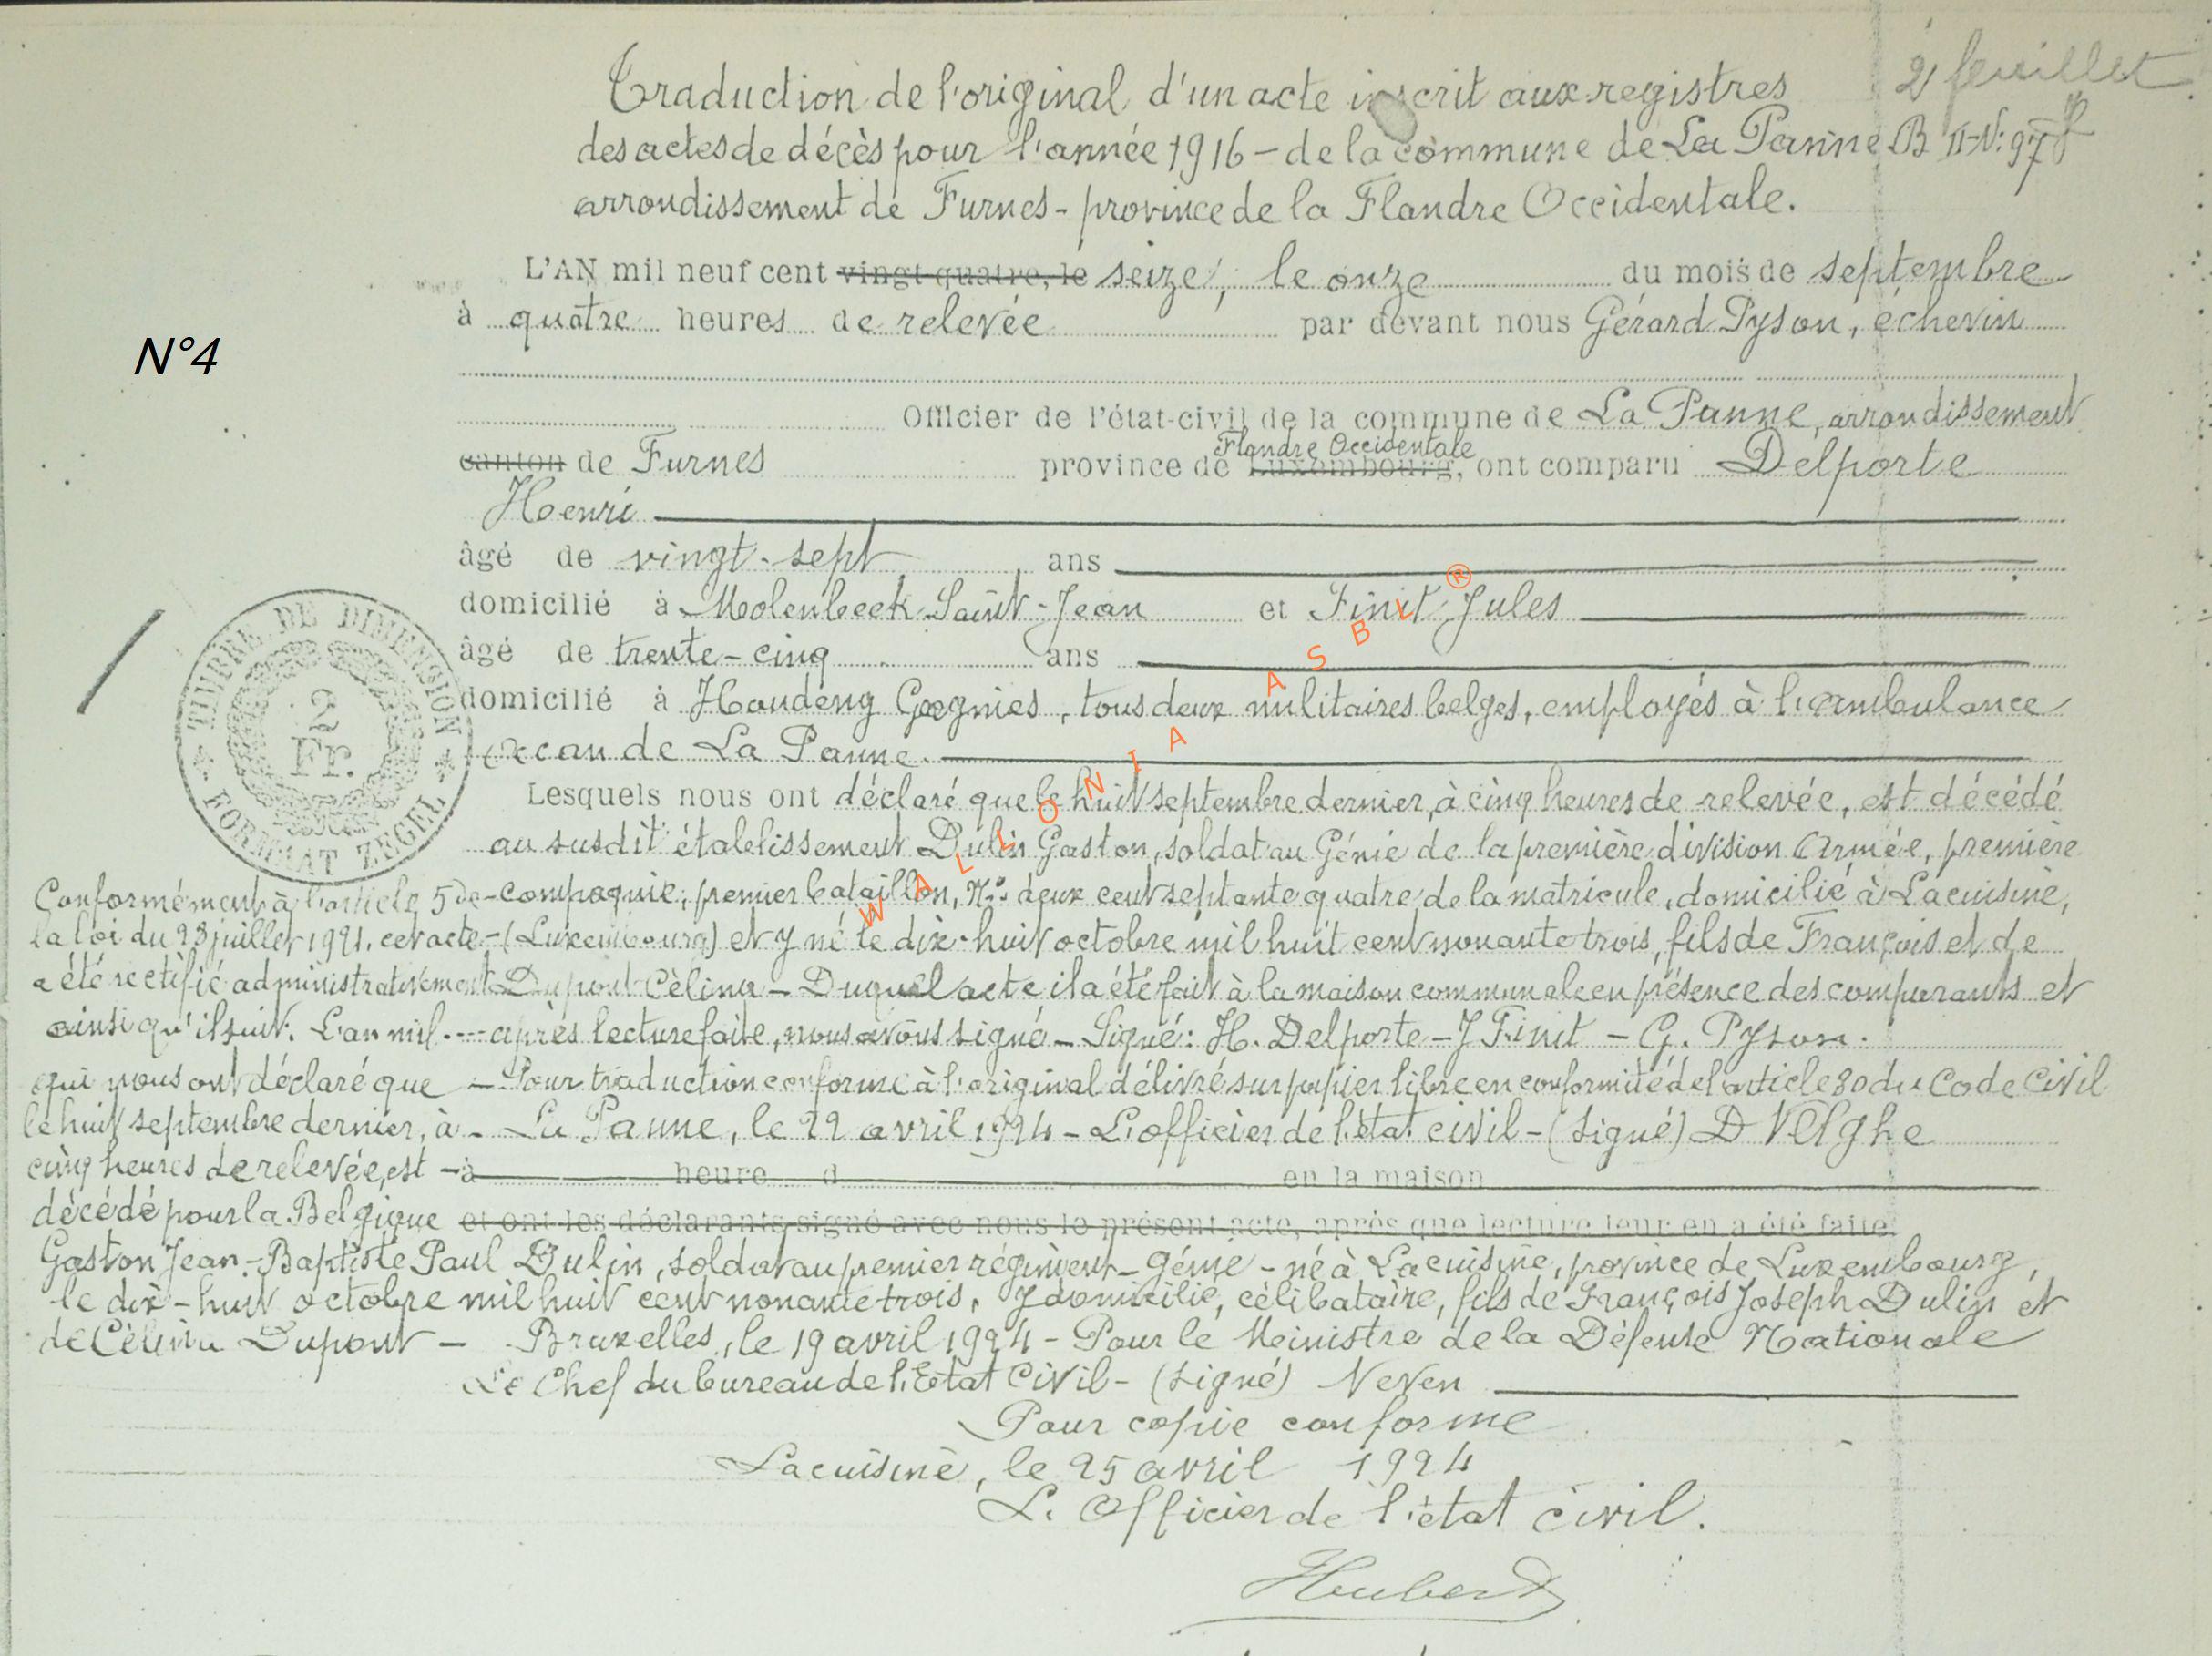 2e feuillet
Traduction de l'original d'un acte inscrit aux registres
des actes de décès pour l'année 1916 - de la commune de La Panne B II N: 97
arrondissement de Furnes - province de la Flandre Occidentale.
L'AN mil neuf cent vingt-quatre, le seize, le onze du mois de septembre
à quatre heures de relevée par devant nous Gérard Pyson, échevin
N°4
Officier de l'état-civil de la commune de La Panne, arrondissement
Flandre Occidentale
canton de Furnes province de Luxembourg, ont comparu Delporte
Henri
âgé de vingt-sept ans
domicilié à Molenbeek-Saint-Jean et Finit Jules
âgé de trente-cinq ans
domicilié à Houdeng Goegnies, tous deux militaires belges, employés à l'ambulance
Océan de La Panne.
TIMBRE DE DIMENSION
2
Fr.
FORMAAT ZEGEL
Lesquels nous ont déclaré que le huit septembre dernier, à cinq heures de relevée, est décédé
au susdit établissement Dulin Gaston, soldat au Génie de la première division Armée, première
compagnie, premier bataillon, No: deux cent septante quatre de la matricule, domicilié à Lacuisine,
(Luxembourg) et y né le dix-huit octobre mil huit cent nonante trois, fils de François et de
Dupont Célina - Duquel acte il a été fait à la maison communale en présence des comparants et
après lecture faite, nous avons signé - Signé: H. Delporte - J Finit - G. Pyson.
Pour traduction conforme à l'original délivré sur papier libre en conformité de l'article 80 du Code Civil
La Panne, le 22 avril 1924 - L'officier de l'état civil - (signé) D Velghe
à heure d en la maison
et ont les déclarants signé avec nous le présent acte, après que lecture leur en a été faite.
Conformément à l'article 5 de
la loi du 23 juillet 1921, cet acte
a été rectifié administrativement
ainsi qu'il suit. L'an mil.---
qui nous ont déclaré que
le huit septembre dernier, à
cinq heures de relevée, est
décédé pour la Belgique
Gaston Jean-Baptiste Paul Dulin, soldat au premier régiment - génie - né à Lacuisine, province de Luxembourg,
le dix-huit octobre mil huit cent nonante trois, y domicilié, célibataire, fils de François Joseph Dulin et
de Célina Dupont - Bruxelles, le 19 avril 1924 - Pour le Ministre de la Défense Nationale
Le Chef du bureau de l'Etat Civil - (signé) Neven
Pour copie conforme
Lacuisine, le 25 avril 1924
L'Officier de l'état civil.
Hubert
WALLONIA ASBL ®